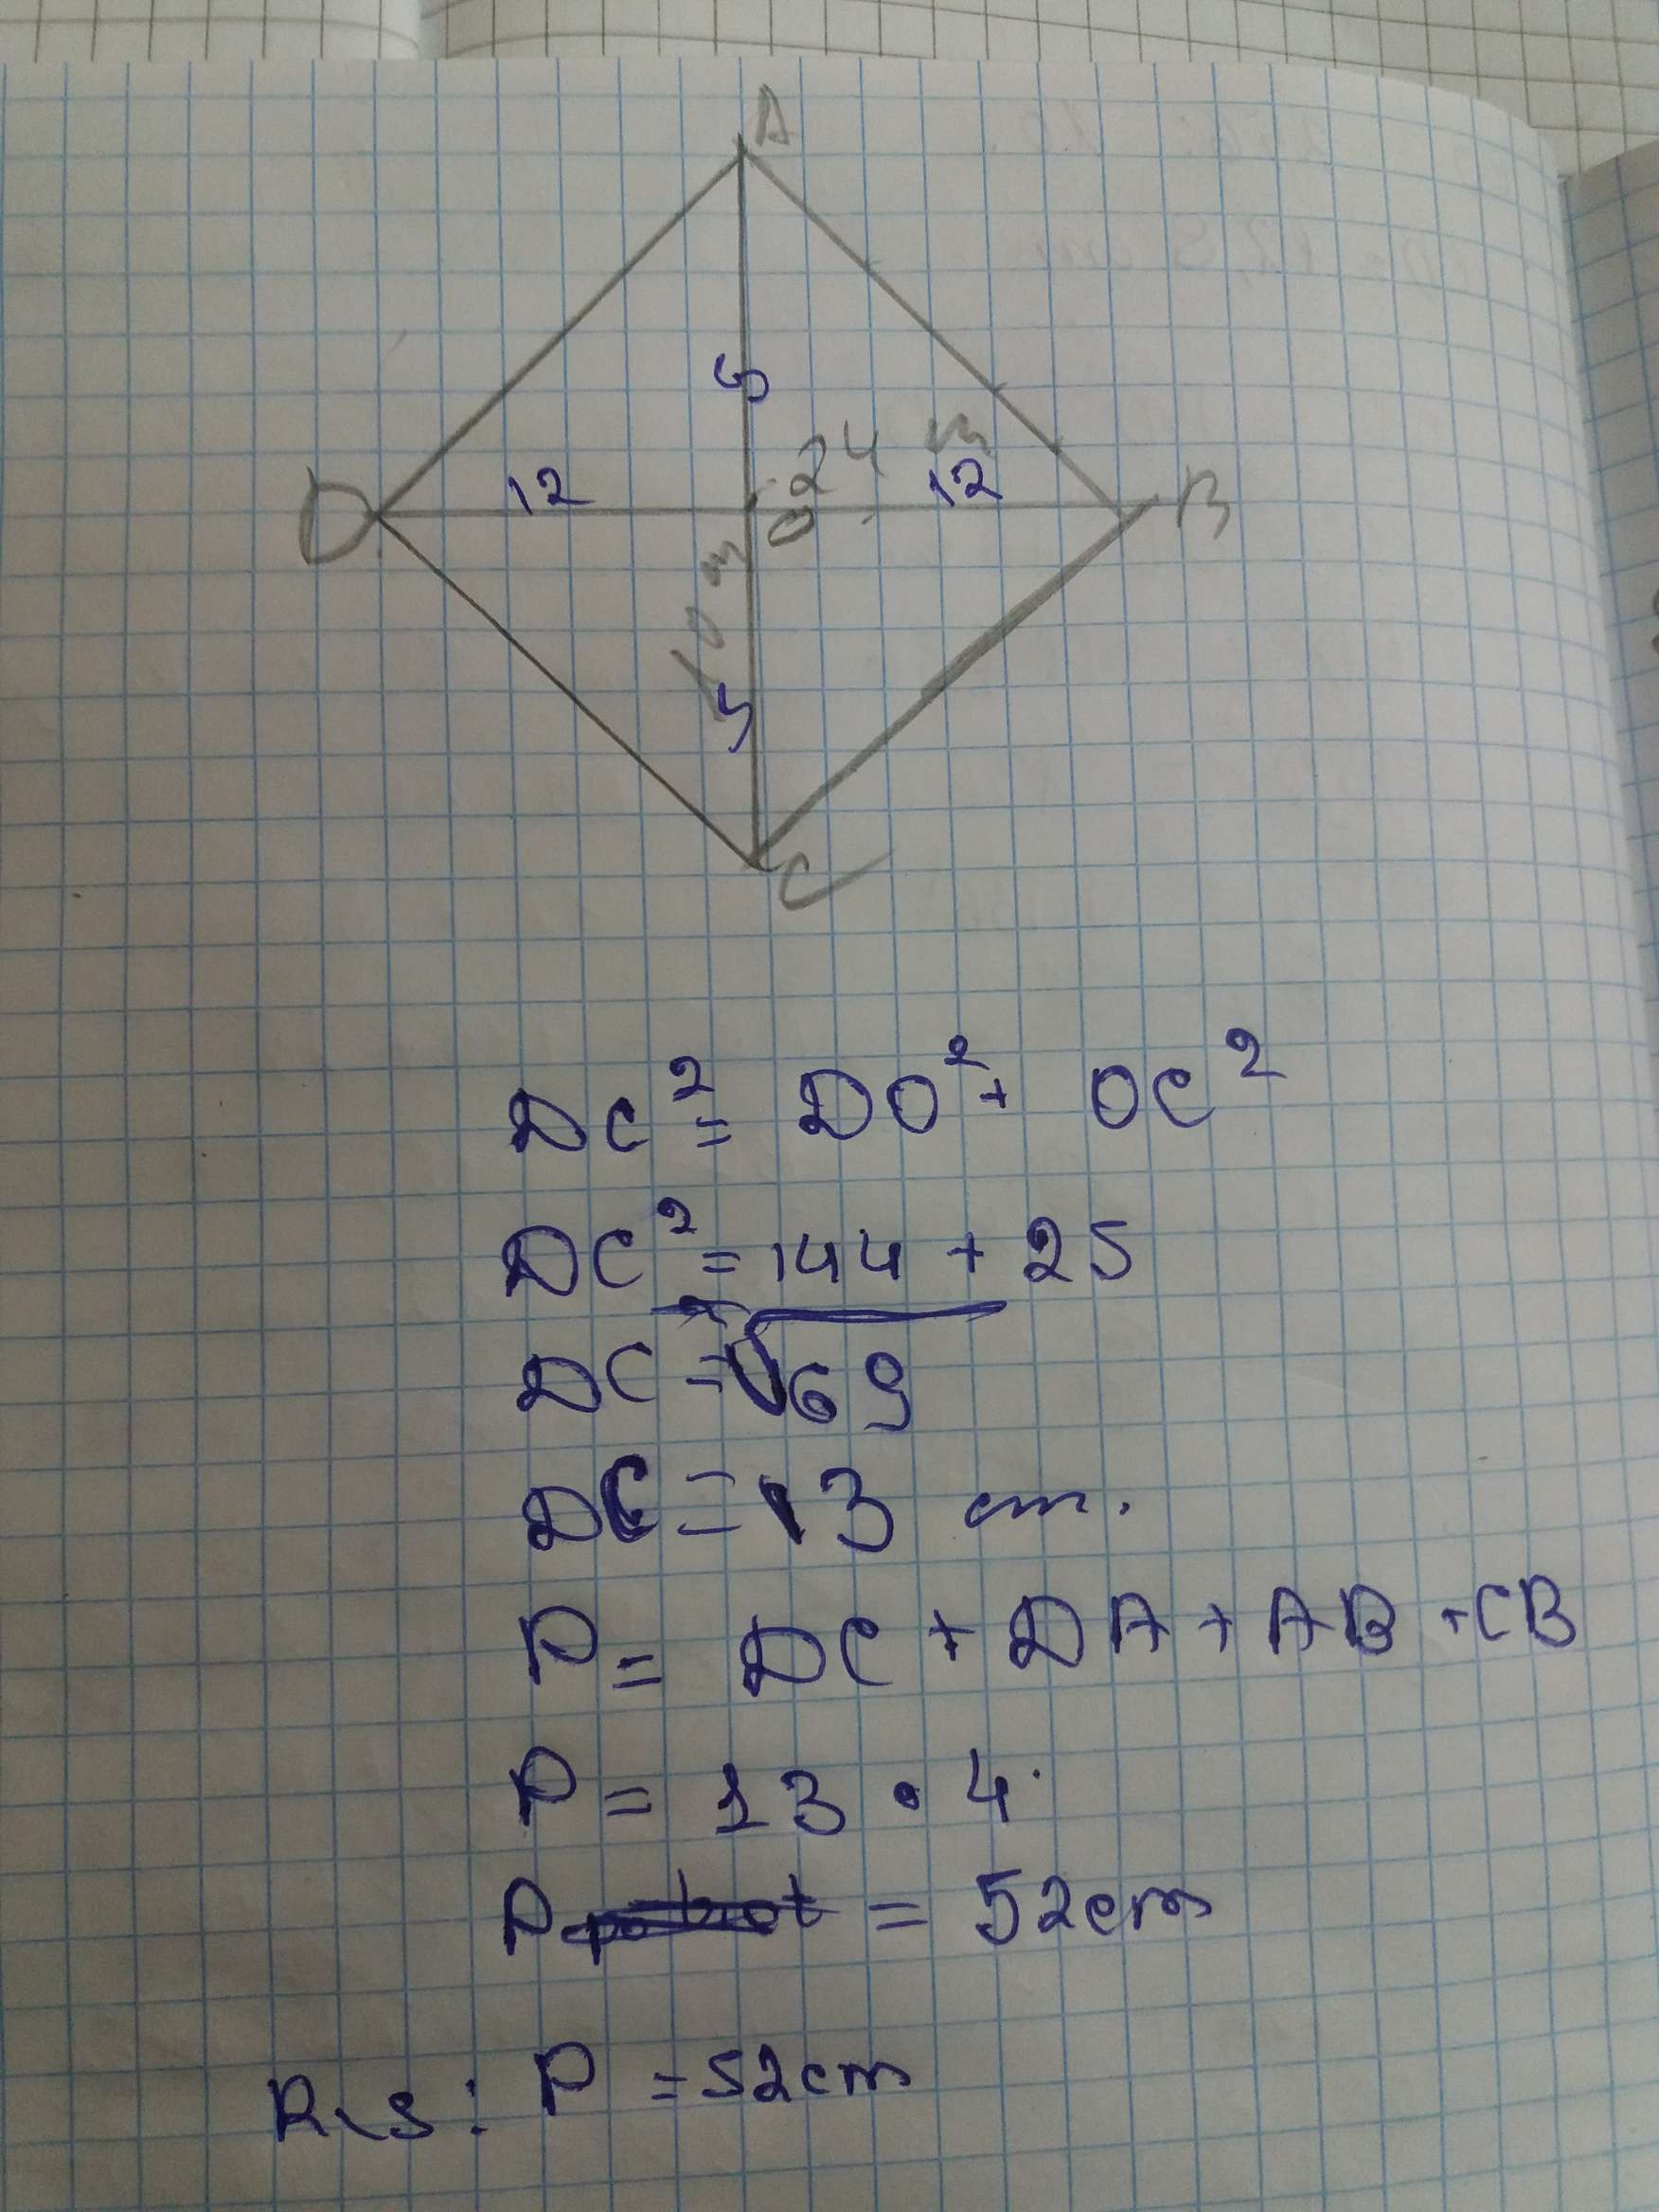 A
5
24 m
D 12 12 B
O
10 m
5
C
DC² = DO² + OC²
DC² = 144 + 25
DC = √169
DC = 13 cm.
P = DC + DA + AB + CB
P = 13 • 4
P = 52cm
Ris: P = 52cm